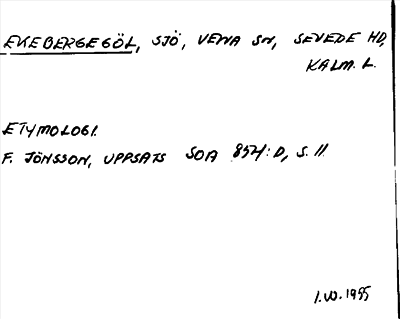 EKEBERGEGÖL, SJÖ, VENA SN, SEVEDE HD,
KALM. L.
ETYMOLOGI.
F. JÖNSSON, UPPSATS SOA 854:D, S. 11.
1.VI.1955